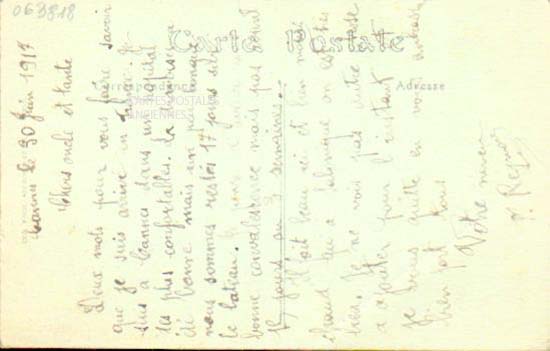 063818
Carte Postale
Correspondance
Adresse
CARTES POSTALES
ANCIENNES
Cannes le 30 Juin 1917
Chers oncle et tante
Deux mots pour vous faire savoir
que je suis arrivé en
suis à Cannes dans un hôpital
des plus confortables. La
été bonne mais un peu longue
nous sommes restés 17 jours sur
le bateau. Je pense
bonne convalescence mais pas avant
15 jours ou 3 semaines.
Il fait beau ici et bien moins
chaud qu'à Salonique on est très
bien. Je ne vois pas autre chose
à ajouter pour l'instant
Je vous quitte en vous embrassant
bien fort tous
Votre neveu